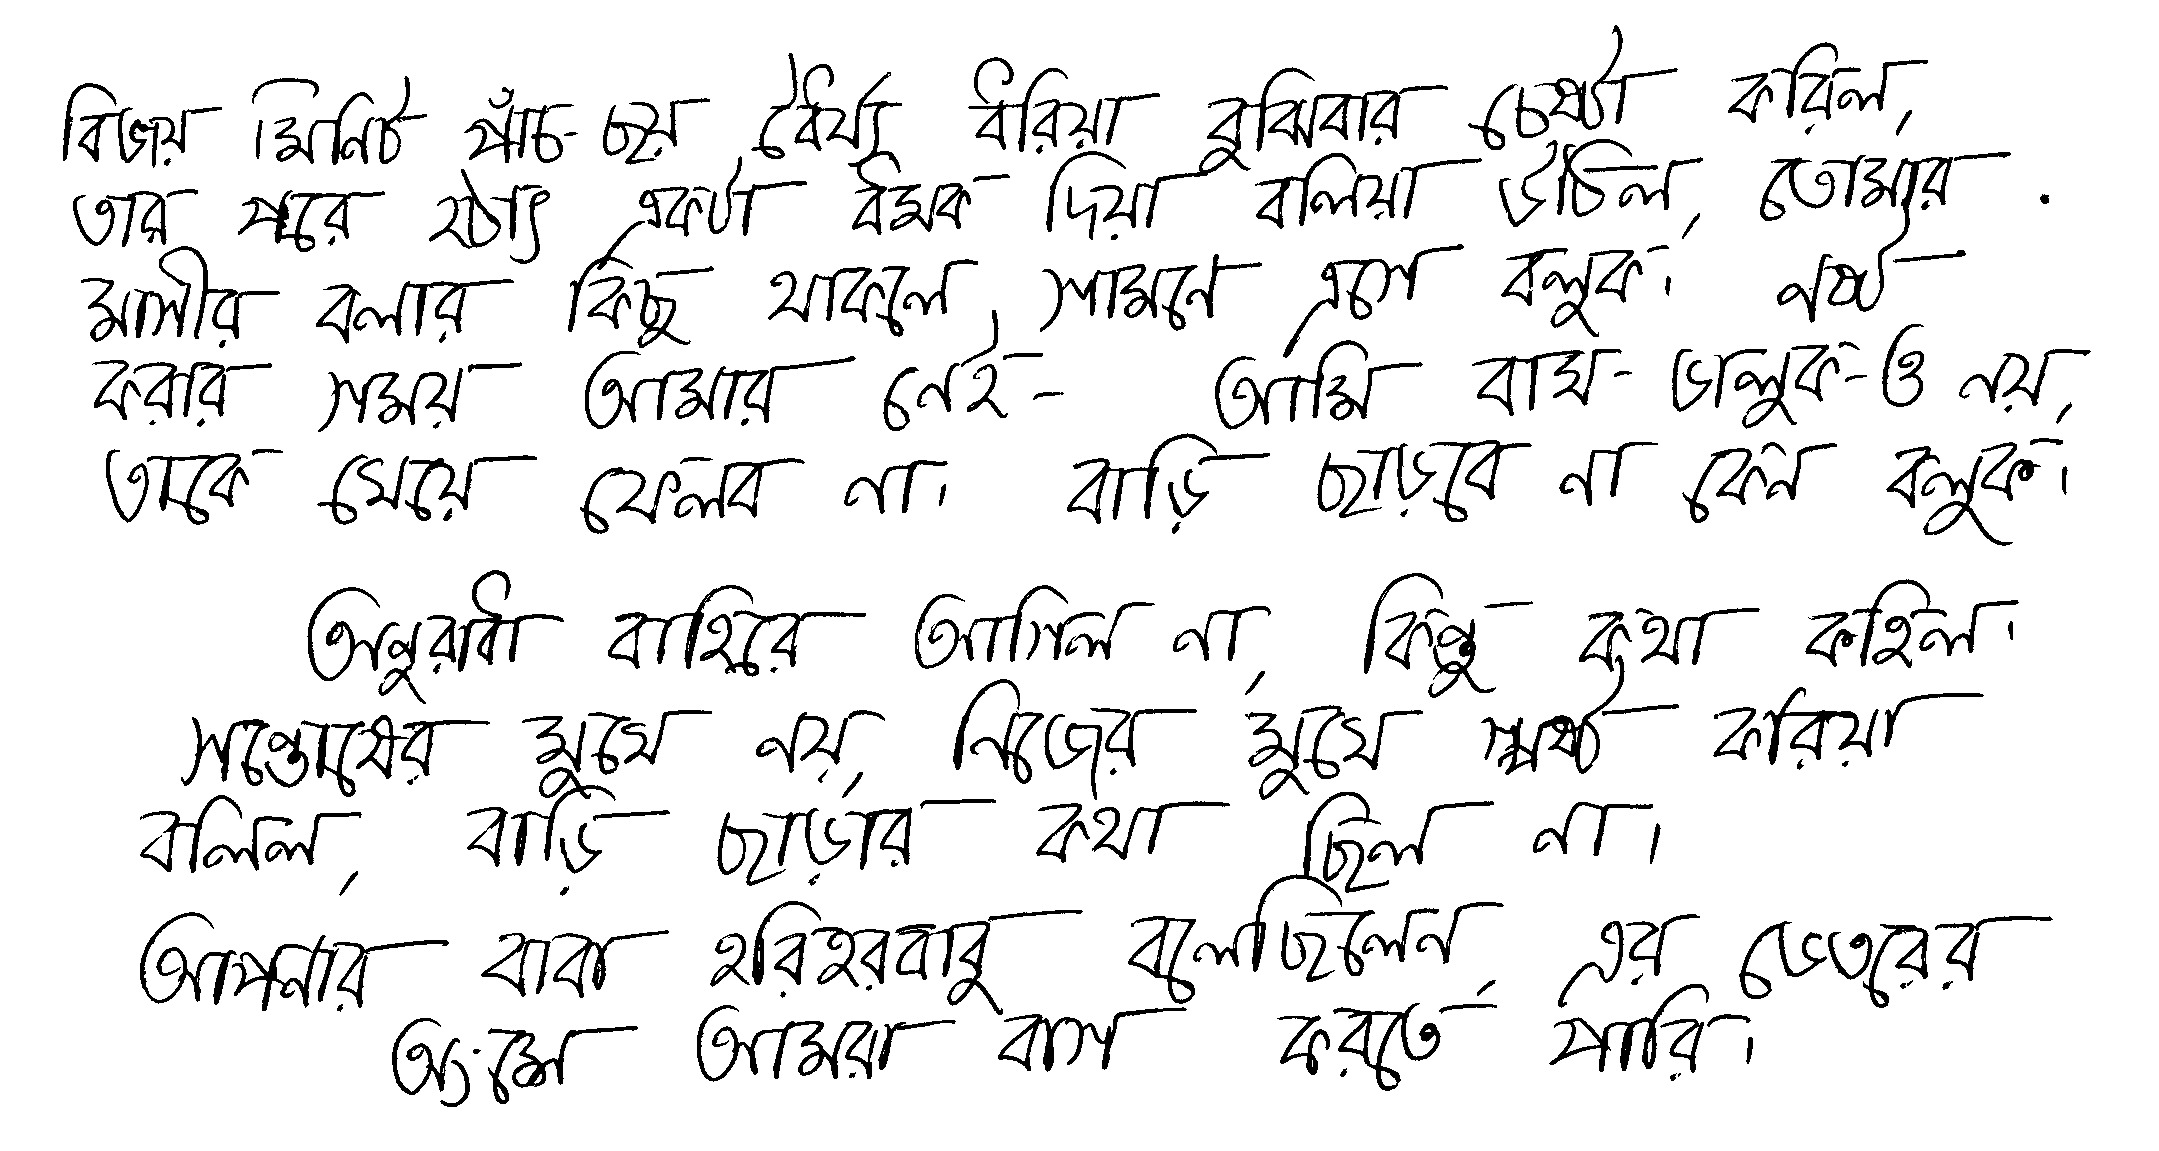 বিজয় মিনিট পাঁচ-ছয় ধৈর্য্য ধরিয়া বুঝিবার চেষ্টা করিল,
তার পরে হঠাৎ একটা ধমক দিয়া বলিয়া উঠিল, তোমার
মাসীর বলার কিছু থাকলে সামনে এসে বলুক। নষ্ট
করার সময় আমার নেই- আমি বাঘ-ভালুক-ও নয়,
তাকে খেয়ে ফেলব না। বাড়ি ছাড়বে না কেন বলুক।
অনুরাধা বাহিরে আসিল না, কিন্তু কথা কহিল।
সন্তোষের মুখে নয়, নিজের মুখে স্পষ্ট করিয়া
বলিল, বাড়ি ছাড়ার কথা ছিল না।
আপনার বাবা হরিহরবাবু বলেছিলেন, এর ভেতরের
অংশে আমরা বাস করতে পারি।